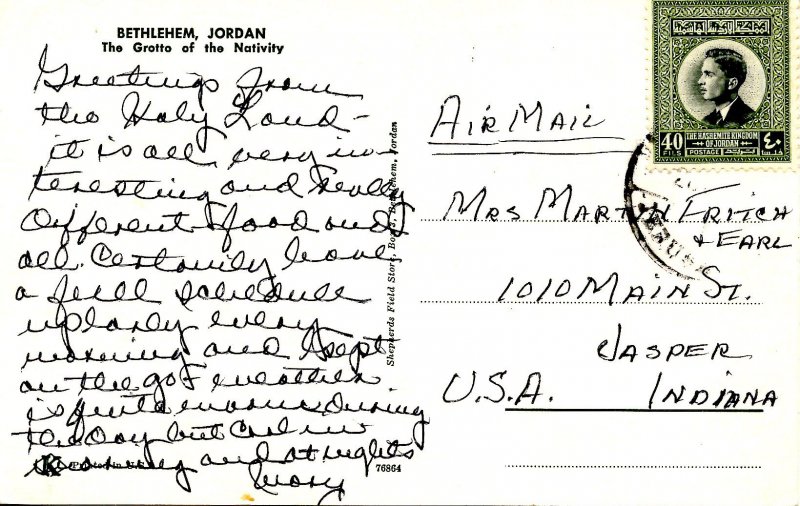 BETHLEHEM, JORDAN
The Grotto of the Nativity
Greetings from
the Holy Land -
it is all very in
teresting and really
different - food and
all. Certainly have
a full schedule
up early every
morning and kept
on the go. Weather
is quite warm during
the day but cool in
and at nights
Mary
Printed in
76864
Shepherds Field Store, Bethlehem, Jordan
AIR MAIL
MRS MARTIN FRITCH
& EARL
1010 MAIN ST.
JASPER
U.S.A. INDIANA
40 FILS
THE HASHEMITE KINGDOM
OF JORDAN
POSTAGE
بريد
٤٠
فلسا
المملكة الاردنية الهاشمية